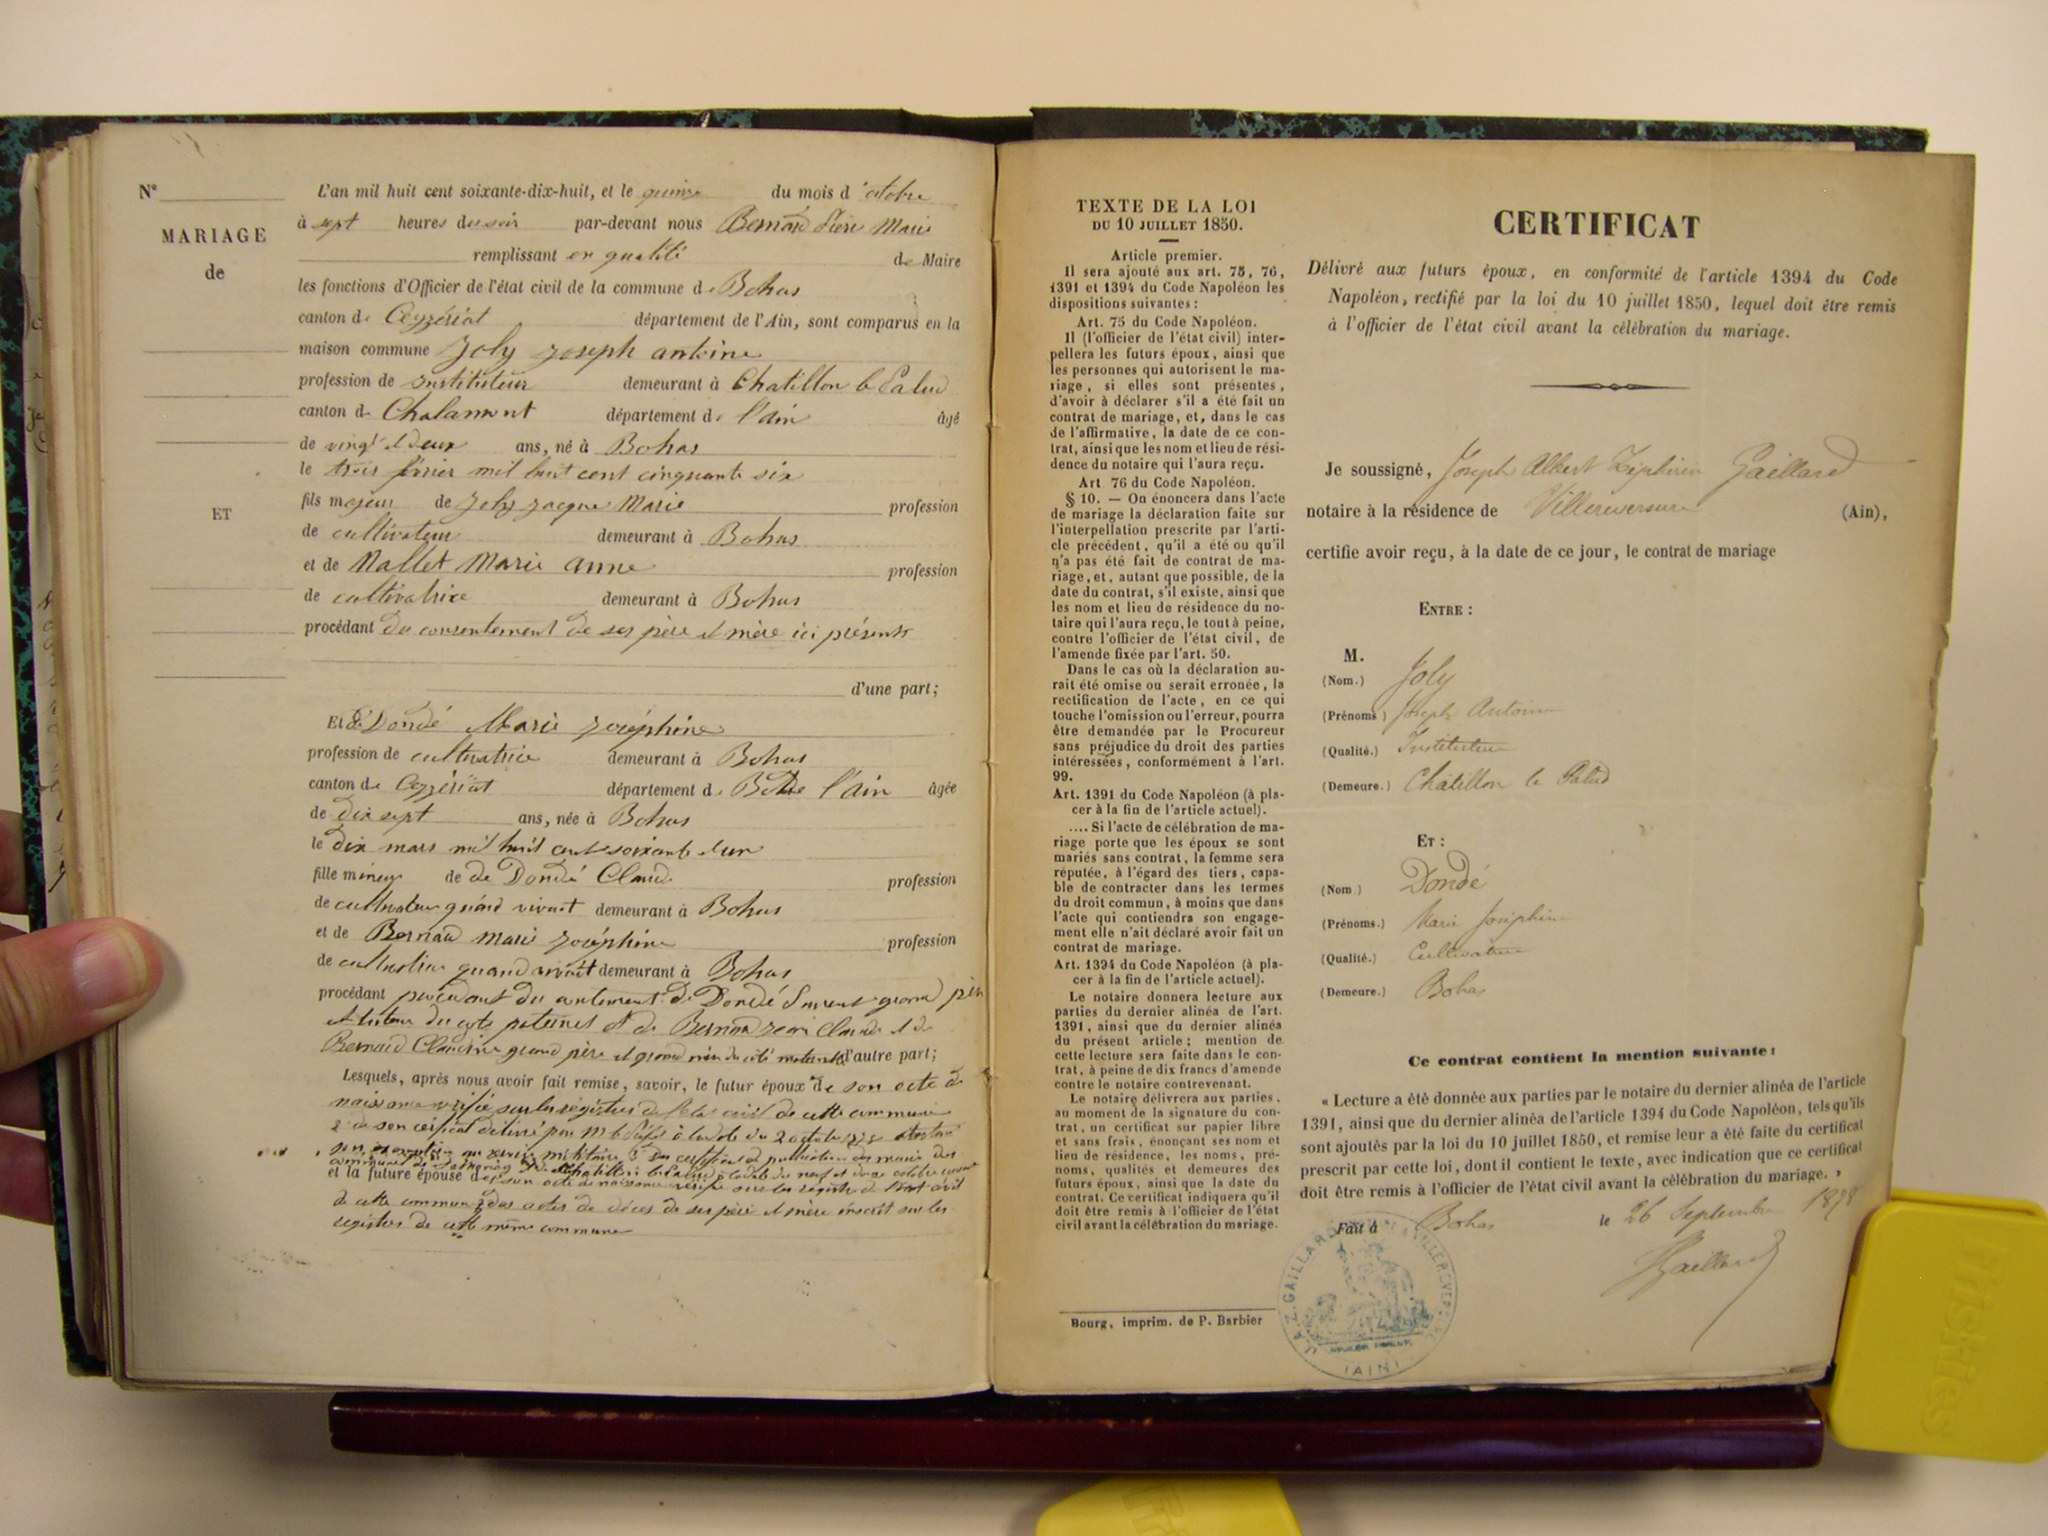 N°
MARIAGE
de
ET
L'an mil huit cent soixante-dix-huit, et le quinze du mois d'octobre
à sept heures du soir par-devant nous Bernard Pierre Marie
remplissant en qualité de Maire
les fonctions d'Officier de l'état civil de la commune de Bohas
canton de Ceyzériat département de l'Ain, sont comparus en la
maison commune Joly Joseph antoine
profession de instituteur demeurant à Chatillon la Palud
canton de Chalamont département de l'ain âgé
de vingt et deux ans, né à Bohas
le trois février mil huit cent cinquante six
fils majeur de Joly Jacque Marie profession
de cultivateur demeurant à Bohas
et de Nallet Marie Anne profession
de cultivatrice demeurant à Bohas
procédant du consentement de ses père et mère ici présents
d'une part;
Et de Dondé Marie Joséphine
profession de cultivatrice demeurant à Bohas
canton de Ceyzériat département de l'ain âgée
de dix sept ans, née à Bohas
le dix mars mil huit cent soixante et un
fille mineure de de Dondé Claude profession
de cultivateur quand vivait demeurant à Bohas
et de Bernard Marie Joséphine profession
de cultivatrice quand vivait demeurant à Bohas
procédant du de Dondé grand père
et tuteur du coté paternel et de Bernard Jean Claude et de
Bernard Claudine grand père et grand mère du coté maternel d'autre part;
Lesquels, après nous avoir fait remise, savoir, le futur époux de son acte de
naissance vérifié sur les régistres de l'état civil de cette commune
2° de son certificat délivré par Mr le Préfet à la date du 2 octobre
militaire 3° publication
et la future épouse de son acte de naissance vérifié sur les régistres de l'état civil
de cette commune 2° des actes de décès de ses père et mère inscrit sur les
régistres de cette même commune
TEXTE DE LA LOI
DU 10 JUILLET 1850.
Article premier.
Il sera ajouté aux art. 75, 76,
1391 et 1394 du Code Napoléon les
dispositions suivantes:
Art. 75 du Code Napoléon.
Il (l'officier de l'état civil) inter-
pellera les futurs époux, ainsi que
les personnes qui autorisent le ma-
riage, si elles sont présentes,
d'avoir à déclarer s'il a été fait un
contrat de mariage, et, dans le cas
de l'affirmative, la date de ce con-
trat, ainsi que les nom et lieu de rési-
dence du notaire qui l'aura reçu.
Art 76 du Code Napoléon.
§ 10. — On énoncera dans l'acte
de mariage la déclaration faite sur
l'interpellation prescrite par l'arti-
cle précédent, qu'il a été ou qu'il
n'a pas été fait de contrat de ma-
riage, et, autant que possible, de la
date du contrat, s'il existe, ainsi que
les nom et lieu de résidence du no-
taire qui l'aura reçu, le tout à peine,
contre l'officier de l'état civil, de
l'amende fixée par l'art. 50.
Dans le cas où la déclaration au-
rait été omise ou serait erronée, la
rectification de l'acte, en ce qui
touche l'omission ou l'erreur, pourra
être demandée par le Procureur
sans préjudice du droit des parties
intéressées, conformément à l'art.
99.
Art. 1391 du Code Napoléon (à pla-
cer à la fin de l'article actuel).
.... Si l'acte de célébration de ma-
riage porte que les époux se sont
mariés sans contrat, la femme sera
réputée, à l'égard des tiers, capa-
ble de contracter dans les termes
du droit commun, à moins que dans
l'acte qui contiendra son engage-
ment elle n'ait déclaré avoir fait un
contrat de mariage.
Art. 1394 du Code Napoléon (à pla-
cer à la fin de l'article actuel).
Le notaire donnera lecture aux
parties du dernier alinéa de l'art.
1391, ainsi que du dernier alinéa
du présent article; mention de
cette lecture sera faite dans le con-
trat, à peine de dix francs d'amende
contre le notaire contrevenant.
Le notaire délivrera aux parties,
au moment de la signature du con-
trat, un certificat sur papier libre
et sans frais, énonçant ses nom et
lieu de résidence, les noms, pré-
noms, qualités et demeures des
futurs époux, ainsi que la date du
contrat. Ce certificat indiquera qu'il
doit être remis à l'officier de l'état
civil avant la célébration du mariage.
Bourg, imprim. de P. Barbier
CERTIFICAT
Délivré aux futurs époux, en conformité de l'article 1394 du Code
Napoléon, rectifié par la loi du 10 juillet 1850, lequel doit être remis
à l'officier de l'état civil avant la célébration du mariage.
Je soussigné, Joseph Albert Zéphirin Gaillard
notaire à la résidence de Villereversure (Ain),
certifie avoir reçu, à la date de ce jour, le contrat de mariage
ENTRE:
M.
(Nom.) Joly
(Prénoms) Joseph Antoine
(Qualité.) Instituteur
(Demeure.) Châtillon la Palud
ET:
(Nom) Dondé
(Prénoms.) Marie Joséphine
(Qualité.) Cultivatrice
(Demeure.) Bohas
Ce contrat contient la mention suivante:
« Lecture a été donnée aux parties par le notaire du dernier alinéa de l'article
1391, ainsi que du dernier alinéa de l'article 1394 du Code Napoléon, tels qu'ils
sont ajoutés par la loi du 10 juillet 1850, et remise leur a été faite du certificat
prescrit par cette loi, dont il contient le texte, avec indication que ce certificat
doit être remis à l'officier de l'état civil avant la célébration du mariage. »
Fait à Bohas le 26 Septembre 1878
Gaillard
J.A.Z. GAILLARD
(AIN)